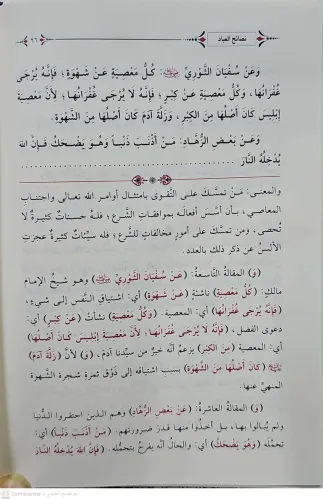 نصائح العباد
٢٦
وَعَنْ سُفْيَانَ الثَّوْرِيِّ : كُلُّ مَعْصِيَةٍ عَنْ شَهْوَةٍ؛ فَإِنَّهُ يُرْجَى
غُفْرَانُهَا، وَكُلُّ مَعْصِيَةٍ عَنْ كِبْرٍ؛ فَإِنَّهُ لَا يُرْجَى غُفْرَانُهَا؛ لِأَنَّ مَعْصِيَةَ
إِبْلِيسَ كَانَ أَصْلُهَا مِنَ الْكِبْرِ، وَزَلَّةَ آدَمَ كَانَ أَصْلُهَا مِنَ الشَّهْوَةِ.
وَعَنْ بَعْضِ الزُّهَّادِ: مَنْ أَذْنَبَ ذَنْباً وَهُوَ يَضْحَكُ فَإِنَّ اللهَ
يُدْخِلُهُ النَّارَ ........................................
والمعنى: مَنْ تمسَّكَ على التَّقوى بامتثال أوامر الله تعالى واجتناب
المعاصي، بأن أسسَ أفعاله بموافقات الشَّرع؛ فله حسناتٌ كثيرةٌ لا
تُحصى، ومن تمسك على أمورِ مخالفاتٍ للشَّرع؛ فله سيِّئاتٌ كثيرة عجزتِ
الألسنُ عن ذكر ذلك بالعدد.
(وَ) المقالة التَّاسعة: (عَنْ سُفْيَانَ الثَّوْرِيِّ ) وهو شيخُ الإمام
مالكٍ: (كُلُّ مَعْصِيَةٍ) ناشئةٍ (عَنْ شَهْوَةٍ) أي: اشتياقِ النَّفْس إلى شيءٍ؛
(فَإِنَّهُ يُرْجَى غُفْرَانُهَا) أي: المعصية. (وَكُلُّ مَعْصِيَةٍ) نشأت (عَنْ كِبْرٍ) أي:
دعوى الفضل، (فَإِنَّهُ لَا يُرْجَى غُفْرَانُهَا، لِأَنَّ مَعْصِيَةَ إِبْلِيسَ كَانَ أَصْلُهَا)
أي: المعصية (مِنَ الْكِبْرِ) بزعمِهِ أنَّه خيرٌ من سيِّدنا آدم، (وَ) لأنَّ (زَلَّةَ آدَمَ)
(كَانَ أَصْلُهَا مِنَ الشَّهْوَةِ) بسبب اشتياقِه إلى ذَوْق ثمرةِ شجرة الشَّهوة
المنهيِّ عنها.
(وَ) المقالة العاشرة: (عَنْ بَعْضِ الزُّهَّادِ) وهم الذين احتقروا الدُّنيا
ولم يُبالوا بها، بل أخذُوا منها قدرَ ضرورتهم: (مَنْ أَذْنَبَ ذَنْباً) أي:
تحمَّله (وَهُوَ يَضْحَكُ) أي: والحال أنَّه يفرحُ بتحمُّله. (فَإِنَّ اللهَ يُدْخِلُهُ النَّارَ
CamScanner